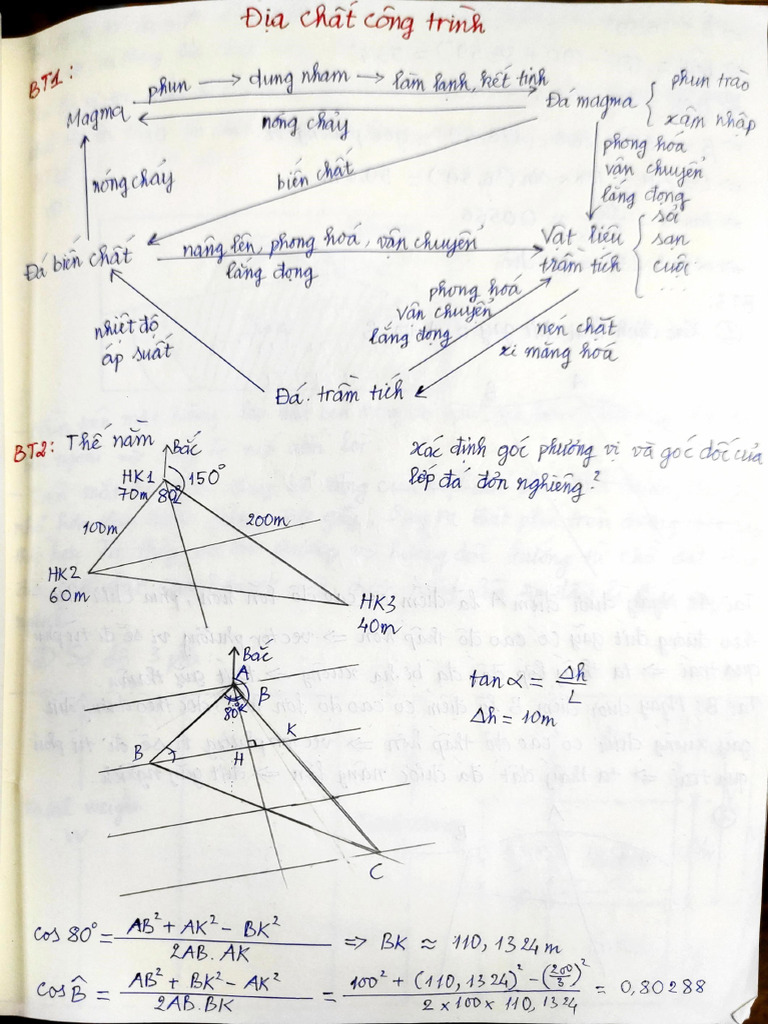 Địa chất công trình
BT1:
phun → dung nham → làm lạnh, kết tinh
Magma
Đá magma { phun trào
xâm nhập
nóng chảy
nóng chảy
biến chất
phong hóa
vận chuyển
lắng đọng
Đá biến chất
nâng lên, phong hoá, vận chuyển
lắng đọng
Vật liệu
trầm tích
sỏi
sạn
cuội
...
nhiệt độ
áp suất
phong hoá
vận chuyển
lắng đọng
nén chặt
xi măng hoá
Đá trầm tích
BT2: Thế nằm
Xác định góc phương vị và góc dốc của
lớp đá đơn nghiêng?
Bắc
HK1
70m
150°
80°
100m
200m
HK2
60m
HK3
40m
Bắc
A
B
80°
K
B
H
C
tan α = Δh/L
Δh = 10m
cos 80° = (AB² + AK² - BK²)/(2AB.AK) ⇒ BK ≈ 110,1324m
cos B̂ = (AB² + BK² - AK²)/(2AB.BK) = (100² + (110,1324)² - (200/3)²)/(2 × 100 × 110,1324) = 0,80288